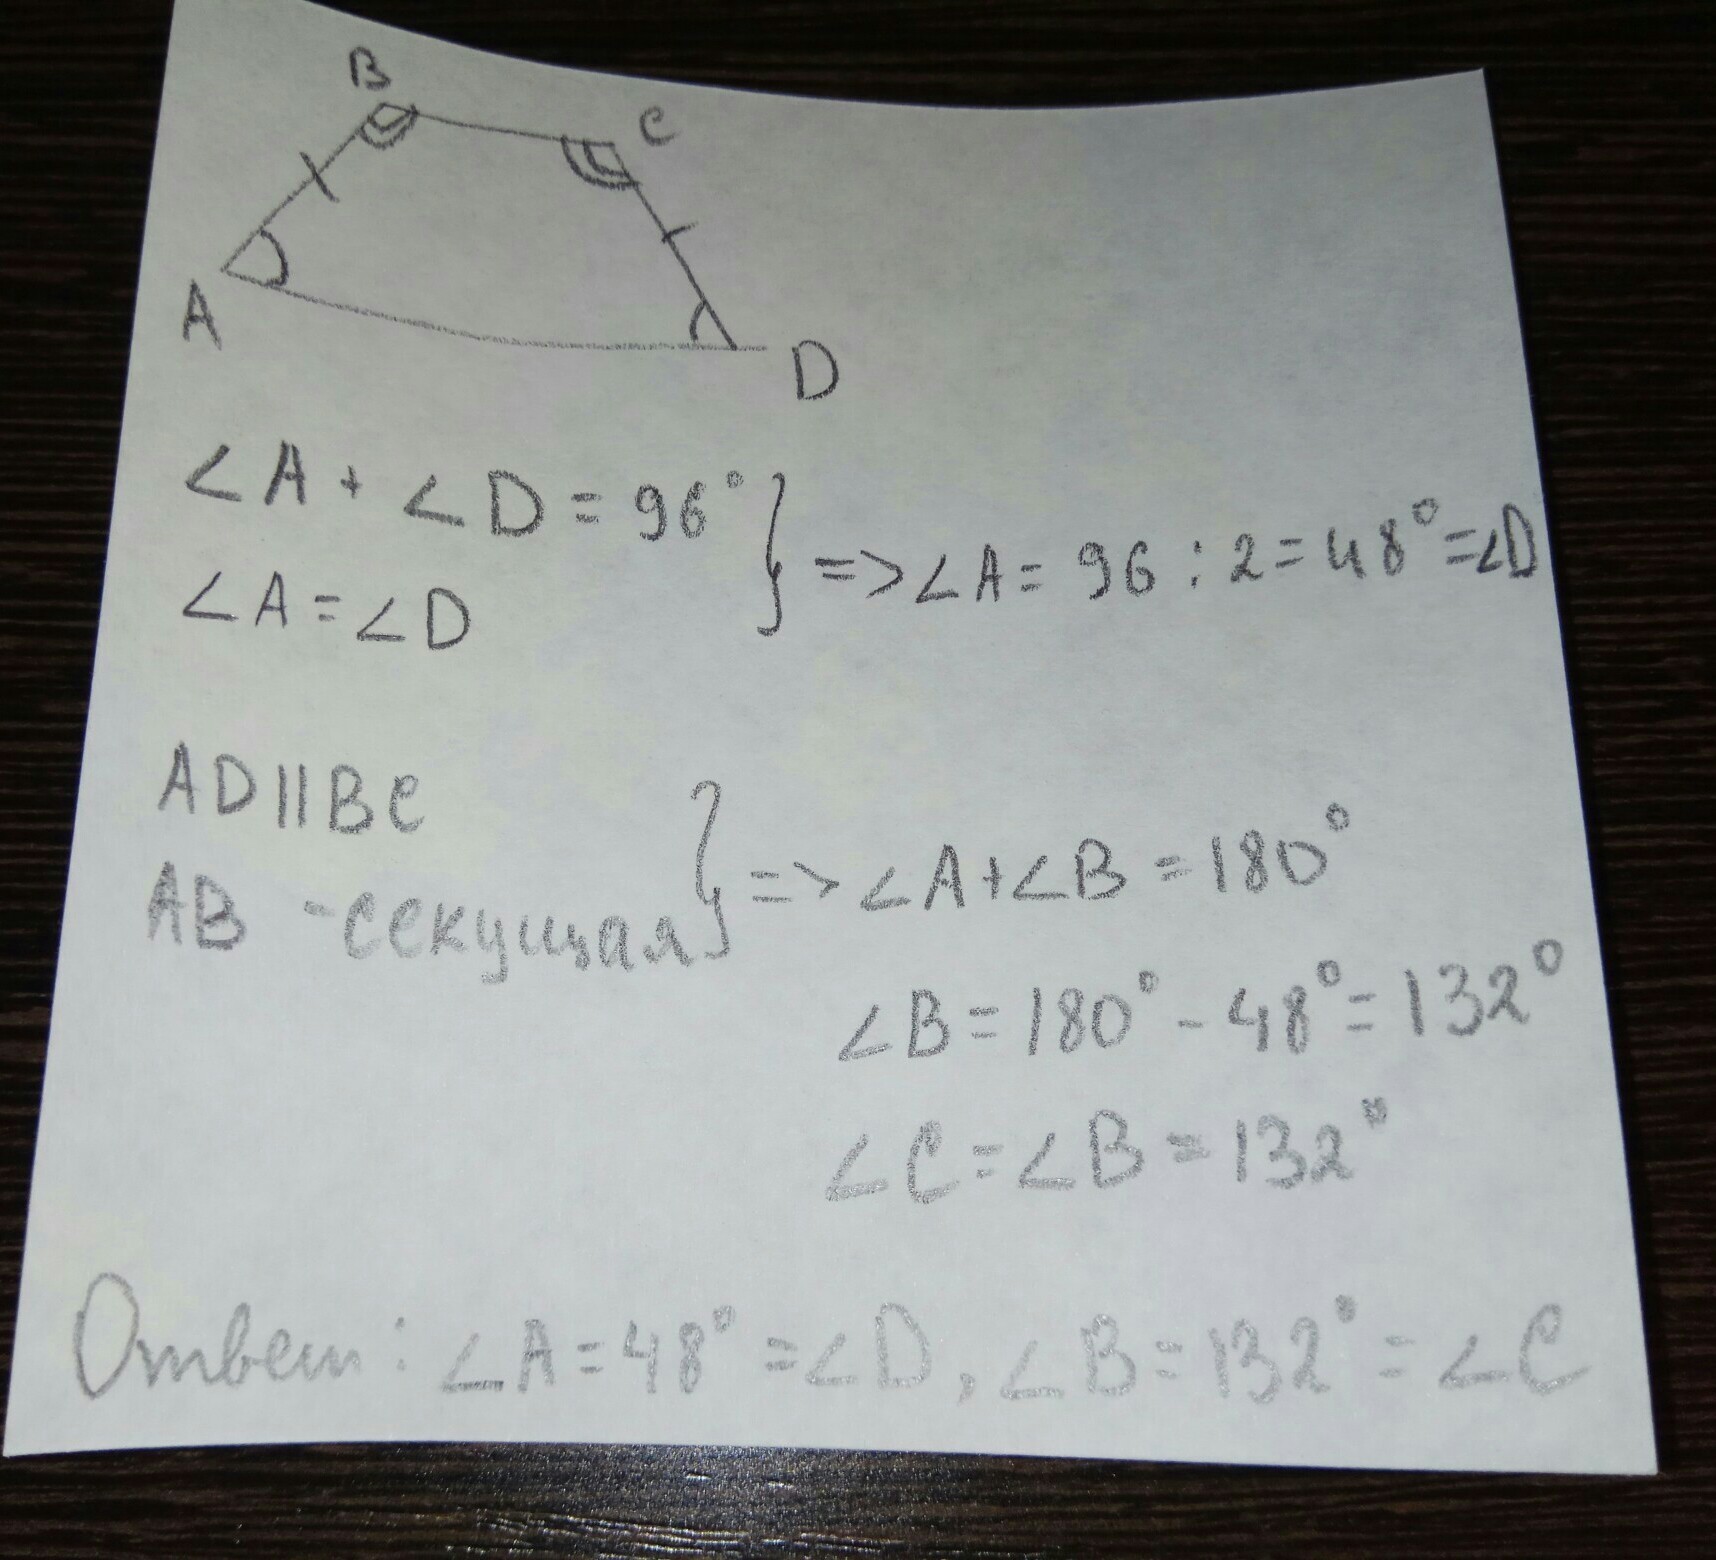 B
C
A
D
∠A + ∠D = 96° } => ∠A = 96 : 2 = 48° = ∠D
∠A = ∠D
AD || BC
AB - секущая } => ∠A + ∠B = 180°
∠B = 180° - 48° = 132°
∠C = ∠B = 132°
Ответ: ∠A = 48° = ∠D, ∠B = 132° = ∠C